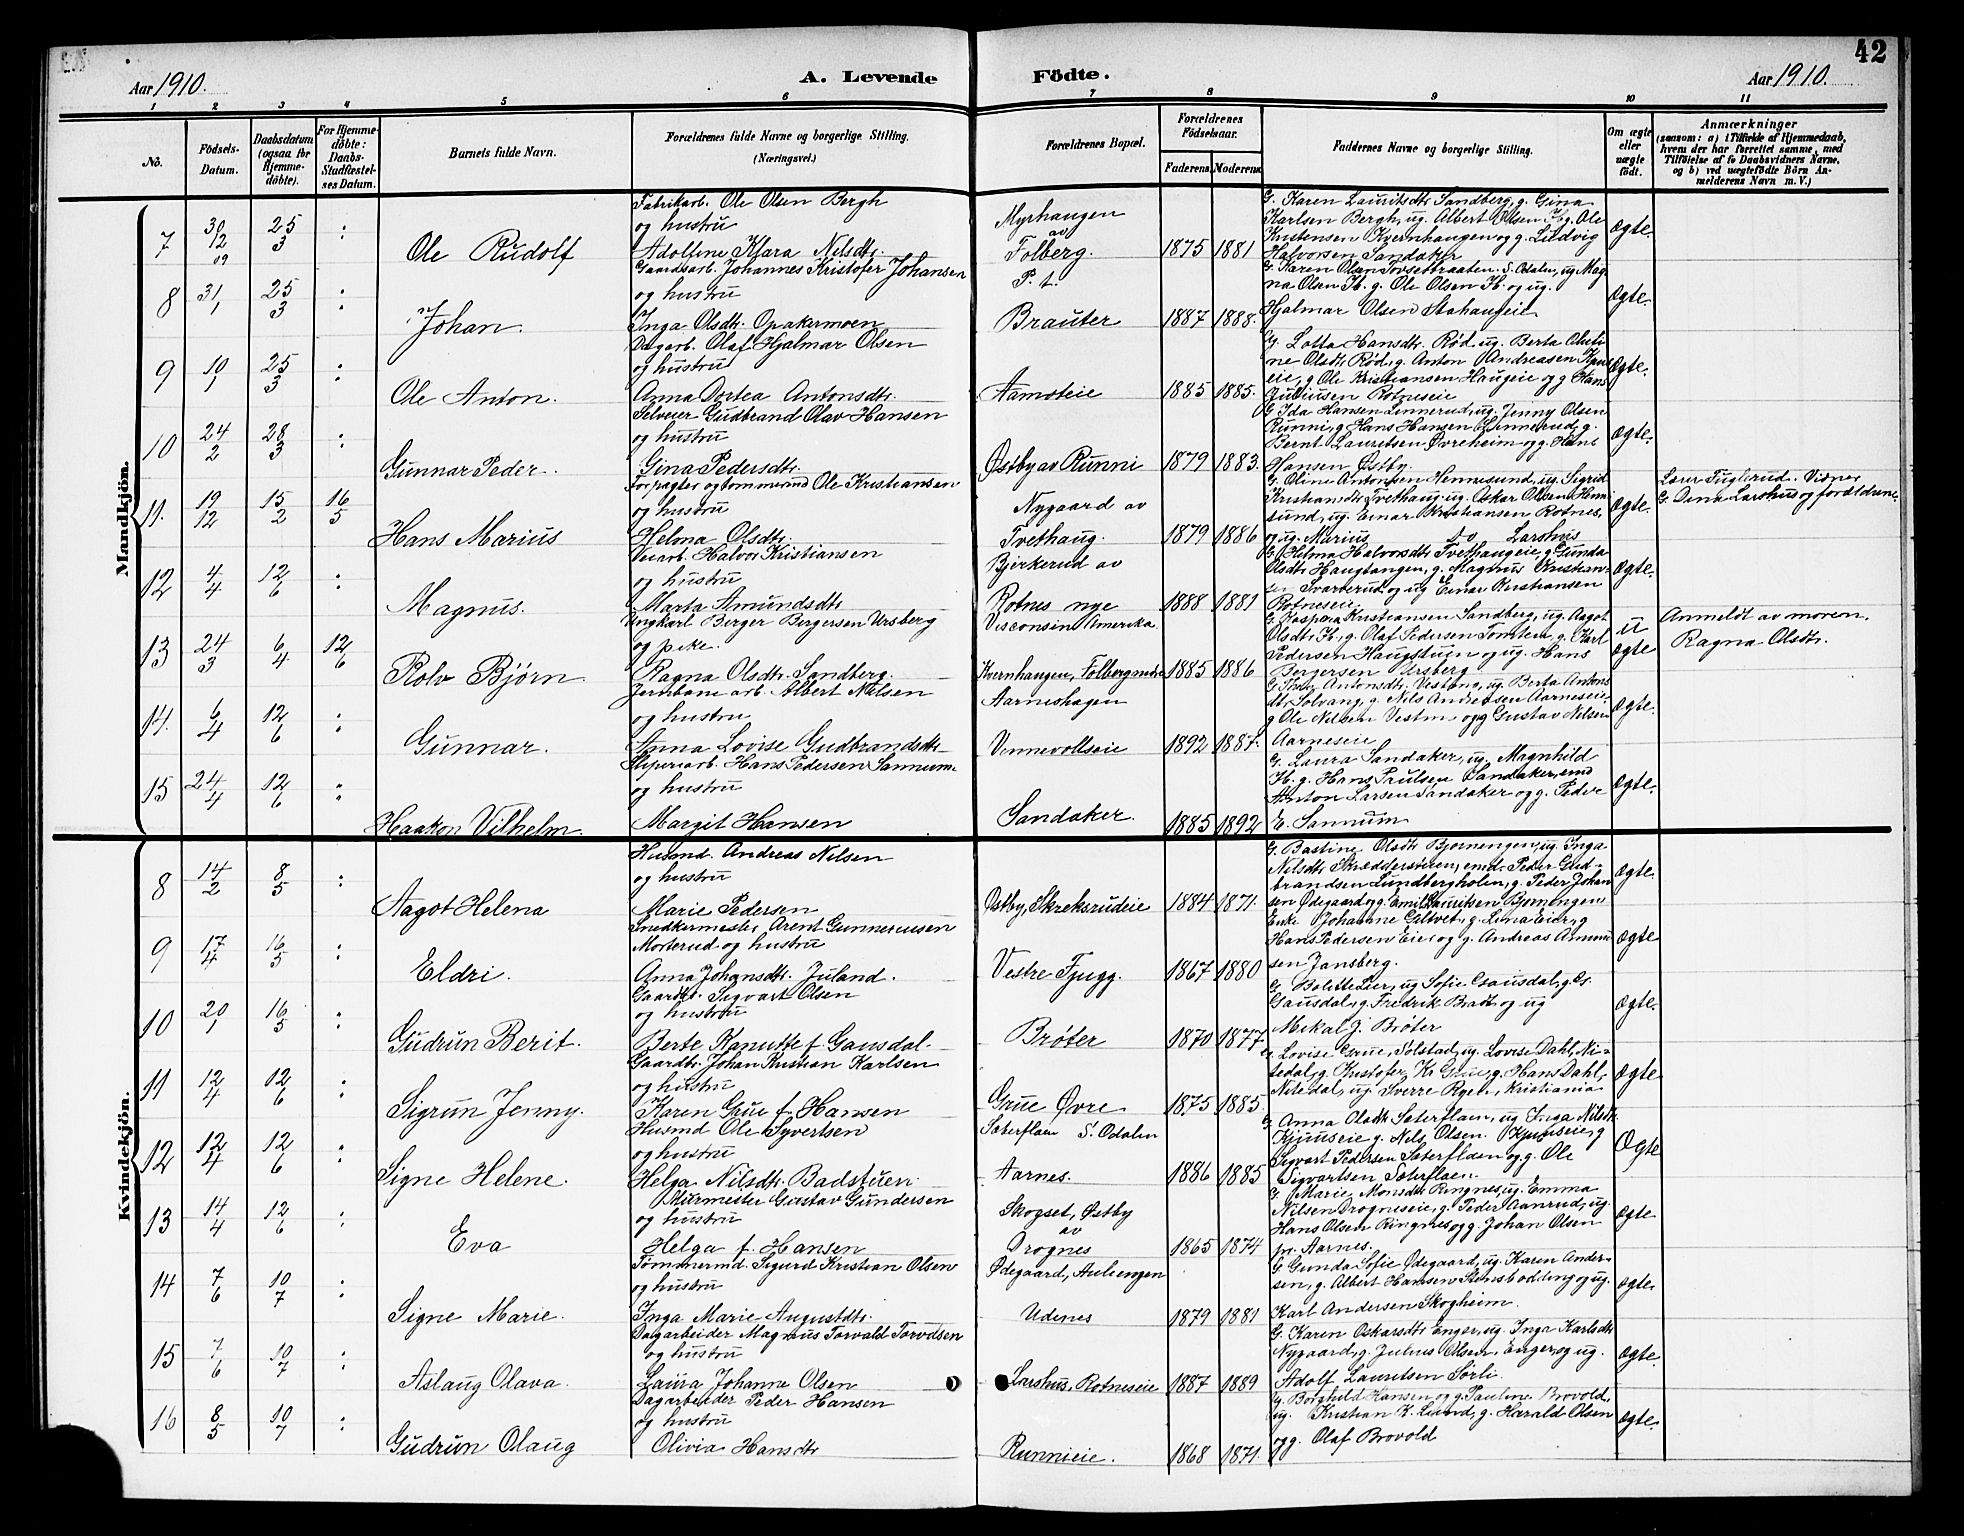 42
Aar 1910.
A. Levende Födte.
Aar 1910.
1 2 3 4 5 6 7 8 9 10 11
No.
Födsels-Datum.
Daabsdatum (ogsaa for Hjemme-döbte).
For Hjemme-döbte: Daabs-Stadfæstel-ses Datum.
Barnets fulde Navn.
Forældrenes fulde Navne og borgerlige Stilling. (Næringsvei.)
Forældrenes Bopæl.
Forældrenes Födselsaar.
Faderens Moderens
Faddernes Navne og borgerlige Stilling.
Om ægte eller uægte födt.
Anmærkninger
(saasom: a) i Tilfælde af Hjemmedaab,
hvem der har forrettet samme, med
Tilföielse af to Daabsvidners Navne,
og b) ved uægtefödte Börn An-
melderens Navn m. V.)
Mandkjön.
7 30/12 09 25/3 : Ole Rudolf
Fabrikarb. Ole Olsen Bergh
og hustru
Adolfine Klara Nilsdtr.
Myrhaugen
av
Folberg.
1875 1881
G. Karen Lauritsdtr Sandberg, g. Gina
Karlsen Bergh, ug. Albert Olsen Kg, Ole
Kristensen Kvernhaugen og g. Ludvig
Halvorsen Sandaker
Ægte.
8 31/1 25/3 : Johan.
Gaardsarb. Johannes Kristofer Johansen
og hustru
Inga Olsdtr. Opakermoen
P. t.
Brauter
1887 1888.
G. Karen Olsen Fossetbraaten. S. Odalen, ug Mag
na Olsen K. g. Ole Olsen K. og ug.
Hjalmar Olsen Stahaugeie
Ægte.
9 10/1 25/3 : Ole Anton.
Dagarb. Olaf Hjalmar Olsen
og hustru
Anna Dortea Antonsdtr.
Aamoteie
1885 1885.
G. Lotta Hansdtr. Rød ug. Berta Oluti
ne Olsdtr Rød, g. Anton Andreasen
eie, g Ole Kristiansen Haugeie og g Hans
Juliusen Rotneseie
Ægte.
10 24/2 28/3 : Gunnar Peder.
Selveier Gudbrand Olav Hansen
og hustru
Gina Pedersdtr.
Østby av Runni
1879 1883.
G Ida Hansen Linnerud, ug. Jenny Olsen
Runni, g Hans Hansen Linnerud, g.
Bernt Lauritsen Øvreheim og g. Hans
Hansen Østby.
Ægte.
11. 19/12 15/2 16/5 Hans Marius
Forpagter og tømmermd Ole Kristiansen
og hustru
Helma Olsdtr.
Nygaard av
Tvethaug.
1879 1886
G. Oline Antonsen Hennesund, ug. Sigrid
Kristiansdtr Tvethaug ug. Oskar Olsen Henn
sund, ug. Einar Kristiansen Rotnes,
og ug. Marius do Larshus
Ægte.
Lærer Fuglerud. Vidner
G. Dina Larshus og forældrene.
12 4/4 12/6 : Magnus.
Veiarb. Halvor Kristiansen
og hustru
Marta Amundsdtr
Bjerkerud av
Rotnes nye
1888 1881
G. Helma Halvorsdtr Tvethaugeie, g. Gunda
Olsdtr Haugtangen, g. Magnus Kristian-
sen Svarverud og ug Einar Kristiansen
Rotneseie
Ægte.
13 24/3 6/4 12/6 Rolv Bjørn
Ungkarl Berger Bergersen Ursberg
og pike.
Ragna Olsdtr. Sandberg.
Visconsin Amerika
Kvernhaugen, Folbergmdre
1885 1886
G. Kaspera Kristiansen Sandberg, ug. Aagot
Olsdtr K., g. Olaf Pedersen Tomten, g. Karl
Pedersen Haugstuen og ug. Hans
Bergersen Ursberg
U
ægte
Anmeldt av moren
Ragna Olsdtr.
14. 6/4 12/6 : Gunnar.
Jernbanearb. Albert Nilsen
og hustru
Anna Lovise Gudbrandsdtr.
Aarneshagen
Vennevoldseie
1892 1887.
G. Antonsdtr. Vestbno, ug. Berta Antons
dtr Solvang, g. Nils Andersen Aarneseie,
g Ole Nilsen Vestm og g Gustav Nilsen
Aarneseie
Ægte.
15 24/4 12/6 : Haakon Vilhelm.
Sliperiarb. Hans Pedersen Sannum.
og hustru
Margit Hansen
Sandaker.
1885 1892
G. Laura Sandaker, ug. Magnhild
K. g. Hans Paulsen Sandaker, emd
Anton Larsen Sandaker og g. Peder
E. Sannum
Ægte.
Kvindekjön.
8 14/2 8/5 : Aagot Helena
Husmd. Andreas Nilsen
og hustru
Marie Pedersen
Østby, Skreksrudeie
1884 1871.
G. Bastine Olsdtr Bjørnengen, ug. Inga
Nilsdtr Skræddersveen, emd. Peder Gud-
brandsen Lundbergholen, g. Peder Johan
sen Ødegaard og g. Emil Lauritsen Bjørnengen
Ægte.
9 17/4 16/5 : Eldri.
Snedkermester Arent Gunneriussen
Morterud og hustru
Anna Johansdtr. Juland.
Vestre Fjugg.
1867 1880
Enke Johanne Giltvet, g. Lina Eier, g
Hans Pedersen Eier og g. Andreas Amund
sen Jansberg.
Ægte
10 20/1 16/5 : Gudrun Berit.
Gaardbr. Sigvart Olsen
og hustru
Berte Kanutte f. Gausdal.
Brøter
1870 1877
G. Bolette Lier, ug Sofie Gausdal, g. Gr.
Gausdal, g. Fredrik Braat og ug
Mikal J. Brøter
Ægte.
11 12/4 12/6 : Sigrun Jenny.
Gaardbr. Johan Kristian Karlsen
og hustru
Karen Grue f. Hansen
Grue Øvre
1875 1885.
G. Lovise Grue, Solstad, ug. Lovise Dahl, Ni-
tedal, g. Kristofer Kr. Grue, g. Hans Dahl,
Nitedal, ug. Sverre Ryen, Kristiania
Ægte
12 12/4 12/6 : Signe Helene.
Husmd Ole Syvertsen
og hustru
Helga Nilsdtr. Badstuen.
Sæterflaen S. Odalen
Aarnes.
1886 1885
G. Anna Olsdtr Sæterflaen, ug. Inga Nilsdtr
Kjuuseie g. Nils Olsen. Kjuuseie, g
Sigvart Pedersen Sæterflaen og g. Ole
Sigvartsen Sæterflaen.
Ægte
13 14/4 12/6 : Eva
Murmester Gustav Gundersen
og hustru
Helga f. Hansen
Skogset, Østby
av
Drognes
1865 1874
G. Marie Monsdtr. Ringnes, ug. Emma
Nilsen Drogneseie, g. Peder Aanrud, ug.
Hans Olsen Ringnes og g. Johan Olsen
pr. Aarnes.
Ægte
14 7/6 10/7 : Signe Marie.
Tømmermd. Sigurd Kristian Olsen
og hustru
Inga Marie Augustdtr.
Ødegaard, Auliengen
Udenes
1879 1881
G Gunda Sofie Ødegaard, ug. Karen Ander-
sen, g. Albert Hansen Stensbødding og ug.
Karl Andersen Skogheim.
Ægte.
15 7/6 10/7 : Aslaug Olava.
Dagarbeider Magnus Torvald Torvdsen
og hustru
Laura Johanne Olsen
Larshus, Rotneseie
1887 1889
G. Karen Oskarsdtr Enger, ug. Inga Karlsdtr
Nygaard, g. Julius Olsen, Enger, og ug.
Adolf Lauritsen Sørli.
Ægte.
16 8/5 10/7 : Gudrun Olaug
Dagarbeider Peder Hansen
og hustru
Olivia Hansdtr
Runnieie.
1868 1871.
G. Borghild Hansen og g. Pauline Brovold,
ug. Kristian K. Lund, g. Harald Olsen
og g. Olaf Brovold
Ægte.